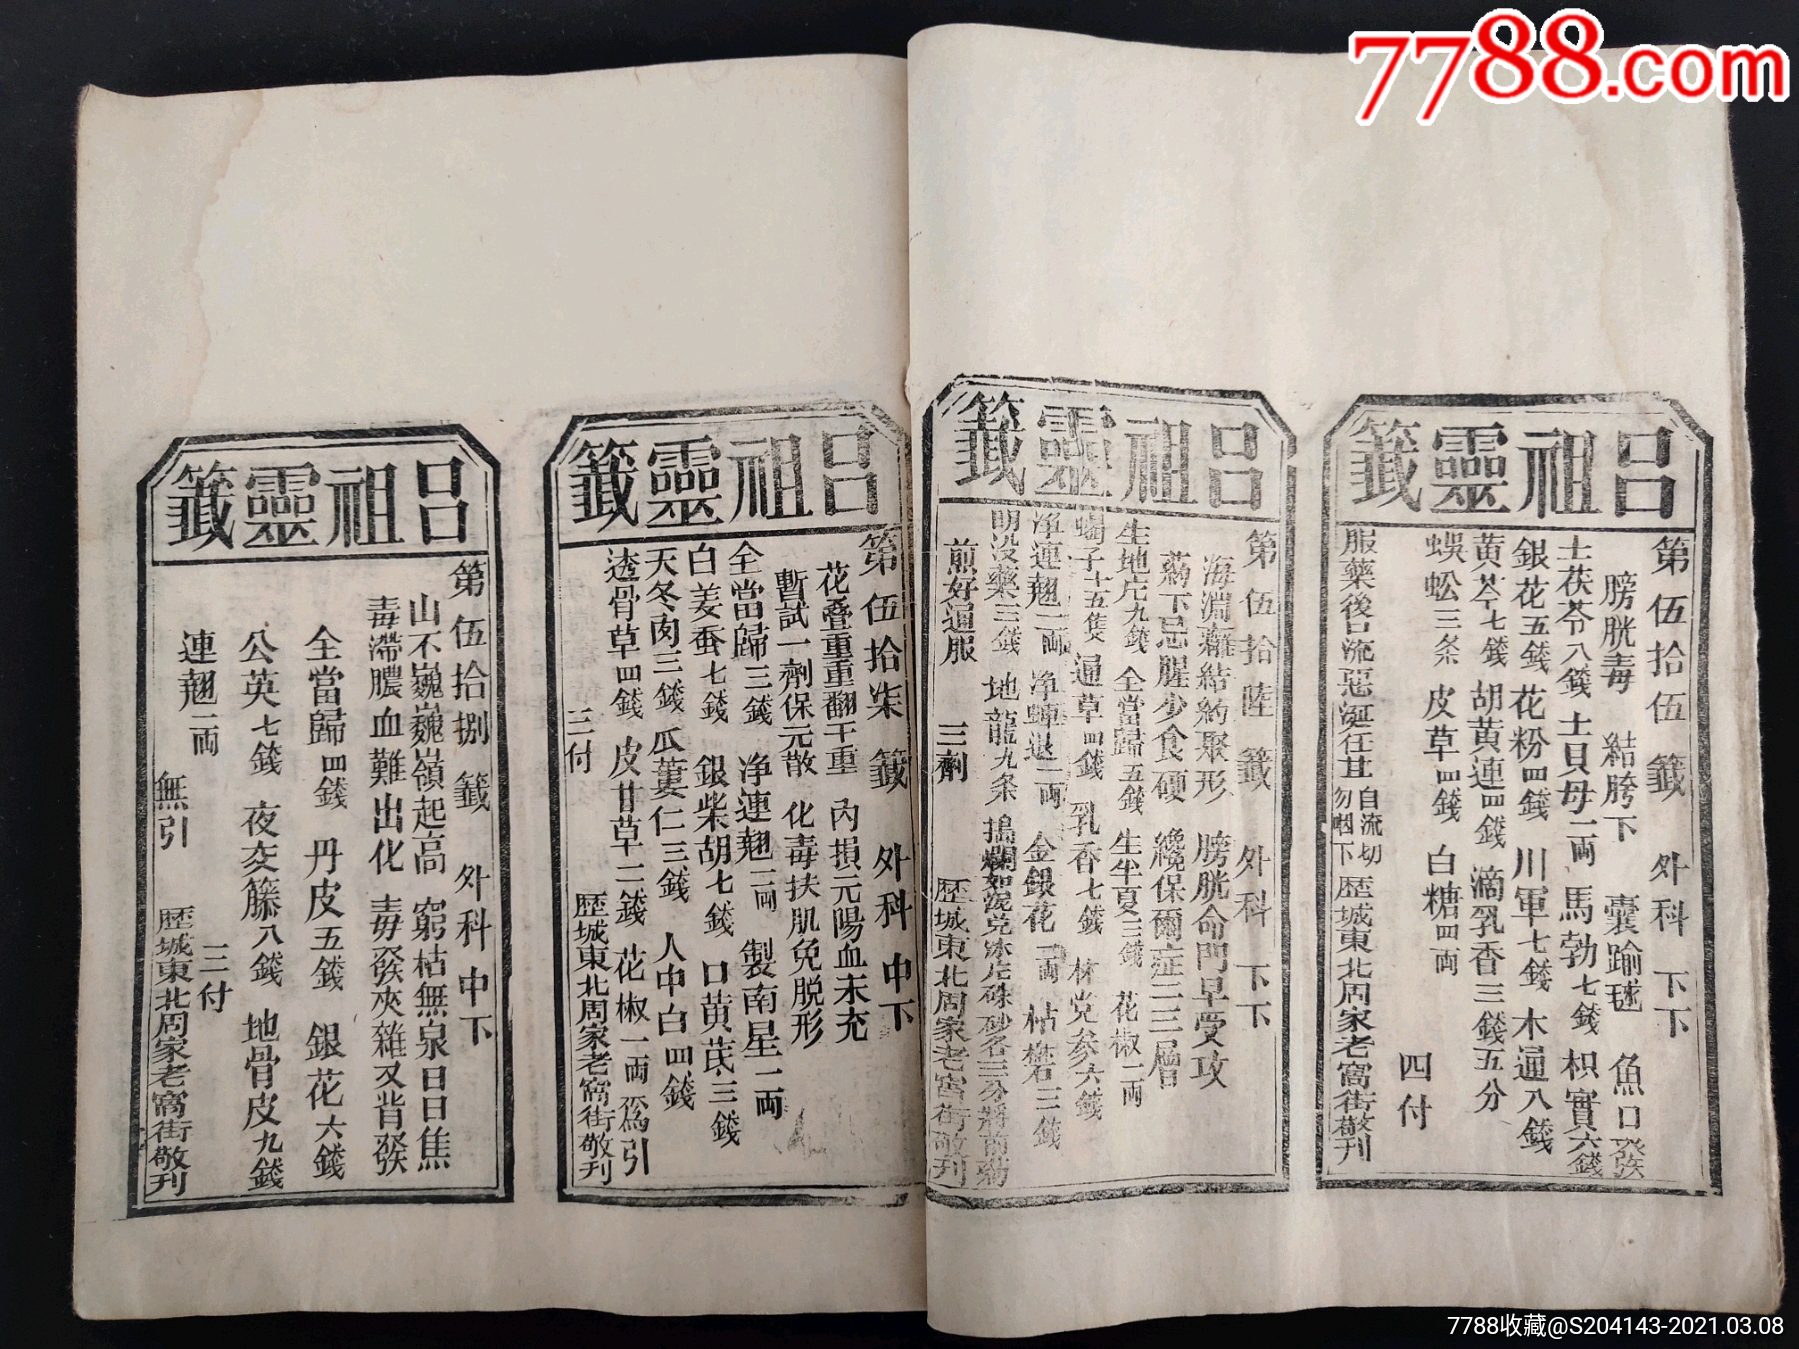 7788.com
呂祖靈籤
第伍拾伍籤 外科 下下
膀胱毒 結胯下 囊踰毬 魚口發
土茯苓八錢 土貝母一両 馬勃七錢 枳實六錢
銀花五錢 花粉四錢 川軍七錢 木通八錢
黄芩七錢 胡黄連四錢 滴乳香三錢五分
蜈蚣三条 皮草四錢 白糖四両
四付
服藥後口流惡涎任其自流切勿咽下 歷城東北周家老窩街敬刊
呂祖靈籤
第伍拾陸籤 外科 下下
海淵蘿結約聚形 膀胱命門早受攻
藥下忌腥少食硬 纔保爾症三三層
生地庀九錢 全當歸五錢 生半夏三錢 花椒一両
蝎子十五隻 通草四錢 乳香七錢 林党参六錢
净連翹二両 净蟬退一両 金銀花一両 枯礬三錢
明没藥三錢 地龍九条 搗爛如泥兑冰片硃砂各三分將前藥
煎好通服 三劑 歷城東北周家老窩街敬刊
呂祖靈籤
第伍拾柒籤 外科 中下
花叠重重翻千重 内損元陽血未充
暫試一劑保元散 化毒扶肌免脱形
全當歸三錢 净連翹一両 製南星二両
白姜蚕七錢 銀柴胡七錢 口黄芪三錢
天冬肉三錢 瓜蔞仁三錢 人中白四錢
透骨草四錢 皮甘草二錢 花椒一両爲引
三付 歷城東北周家老窩街敬刊
呂祖靈籤
第伍拾捌籤 外科 中下
山不巍巍嶺起高 窮枯無泉日日焦
毒滯膿血難出化 毒發夾雜又背發
全當歸四錢 丹皮五錢 銀花六錢
公英七錢 夜交籐八錢 地骨皮九錢
連翹二両 三付
無引 歷城東北周家老窩街敬刊
7788收藏@S204143-2021.03.08